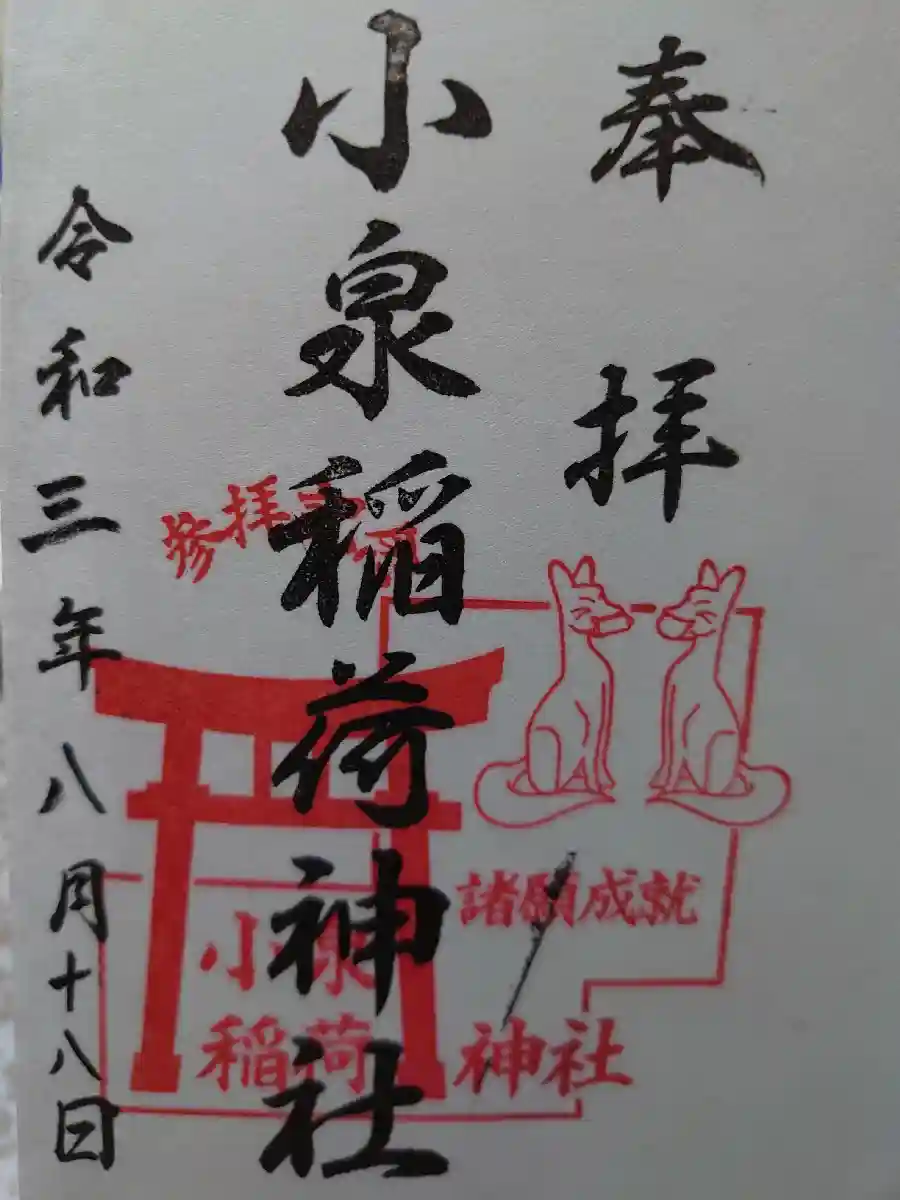 奉拝
小泉稲荷神社
令和三年八月十八日
参拝
諸願成就
小泉
稲荷 神社